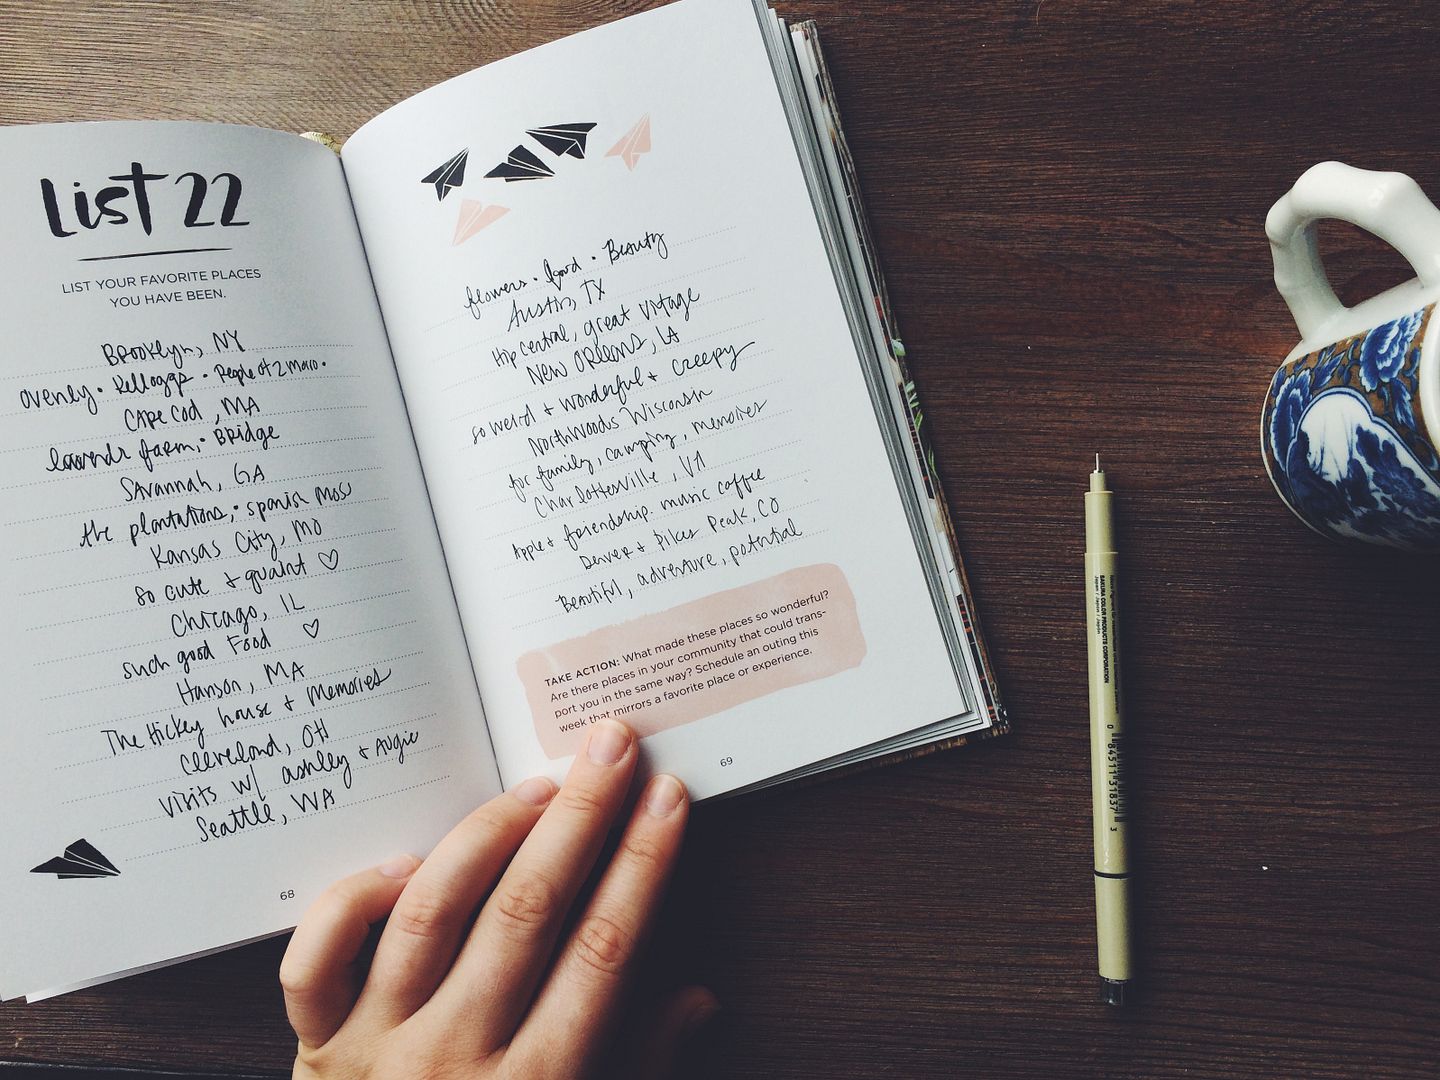 List 22
LIST YOUR FAVORITE PLACES
YOU HAVE BEEN.
Brooklyn, NY
ovenly • Kelloggs • People of 2 moro •
CAPE Cod, MA
farm, • Bridge
Savannah, GA
the plantations, • spanish moss
Kansas City, MO
so cute & quaint ♡
Chicago, IL
such good Food ♡
Hanson, MA
The Hickey house & Memories
Cleveland, OH
visits w/ ashley & Augie
Seattle, WA
68
flowers • food • Beauty
Austin, TX
Hip central, great vintage
NEW ORLEANS, LA
so weird & wonderful & creepy
NorthWoods Wisconsin
for family, camping, memories
Charlottesville, VA
Apple & friendship. music coffee
Denver & Pikes Peak, CO
Beautiful, adventure, potential
TAKE ACTION: What made these places so wonderful?
Are there places in your community that could trans-
port you in the same way? Schedule an outing this
week that mirrors a favorite place or experience.
69
SAKURA COLOR PRODUCTS CORPORATION
Japan / Japon / Japón
0 84511 31837 3